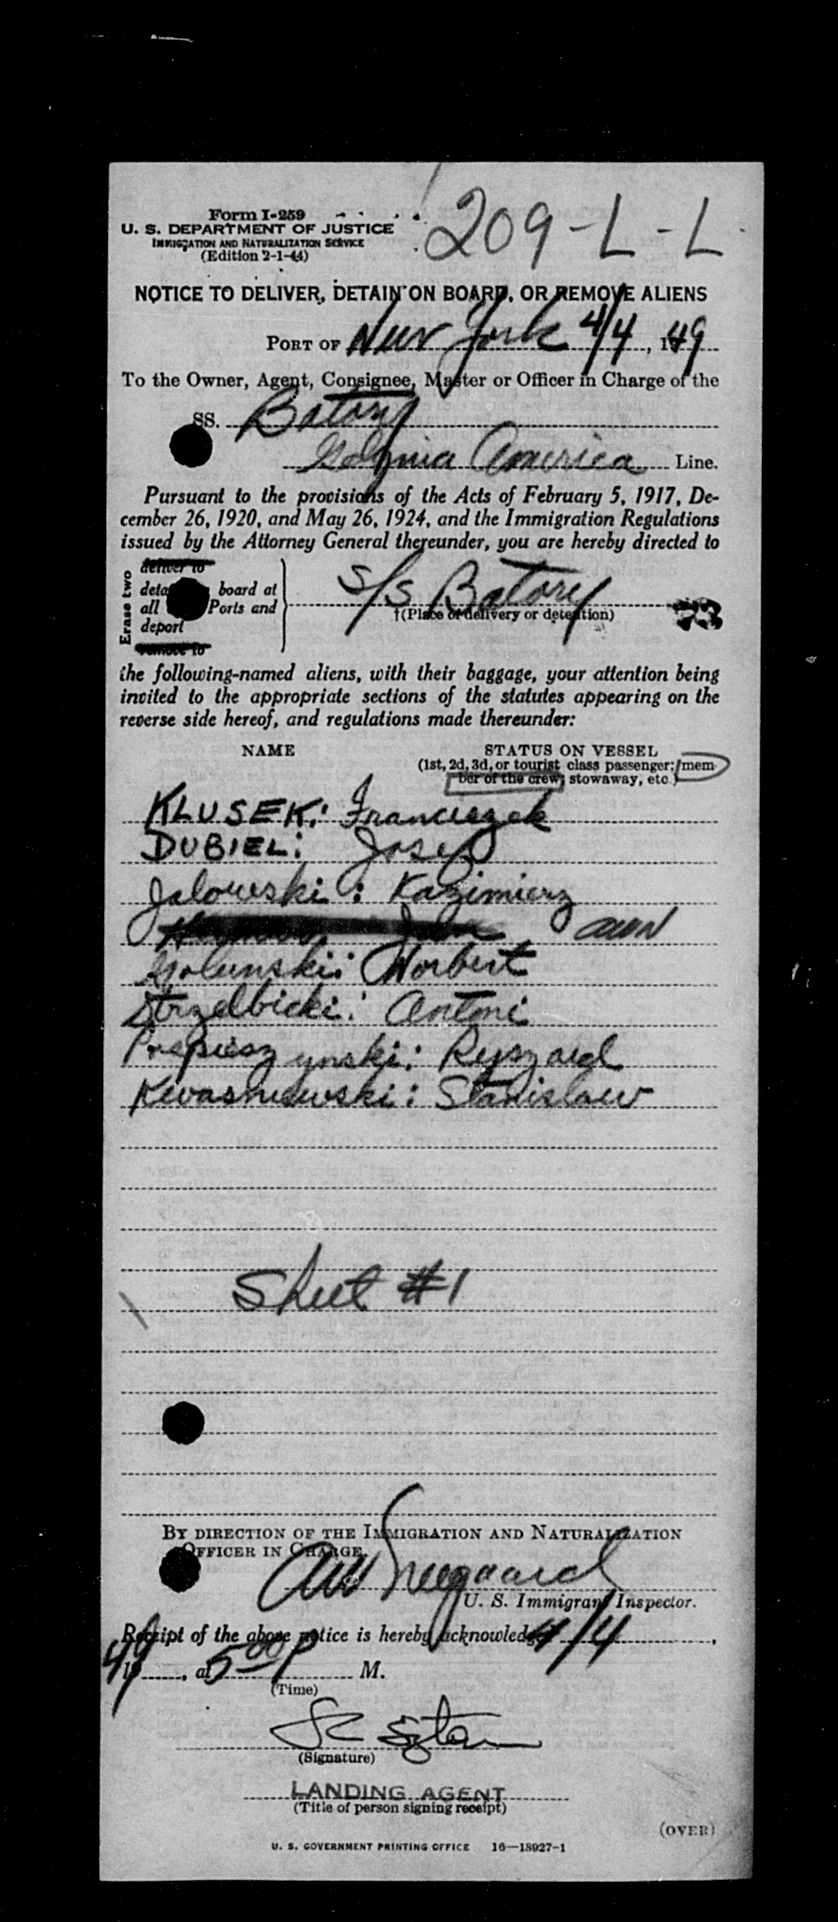 Form I-259
209-L-L
U. S. DEPARTMENT OF JUSTICE
IMMIGRATION AND NATURALIZATION SERVICE
(Edition 2-1-44)
NOTICE TO DELIVER, DETAIN ON BOARD, OR REMOVE ALIENS
PORT OF New York 4/4, 1949
To the Owner, Agent, Consignee, Master or Officer in Charge of the
SS. Batory
Gdynia America Line.
Pursuant to the provisions of the Acts of February 5, 1917, De-
cember 26, 1920, and May 26, 1924, and the Immigration Regulations
issued by the Attorney General thereunder, you are hereby directed to
Erase two
deliver to
board at
all Ports and
deport
remove to
S/S Batory
†(Place of delivery or detention)
the following-named aliens, with their baggage, your attention being
invited to the appropriate sections of the statutes appearing on the
reverse side hereof, and regulations made thereunder:
NAME
STATUS ON VESSEL
(1st, 2d, 3d, or tourist class passenger; mem-
ber of the crew; stowaway, etc.)
KLUSEK: Franciszek
DUBIEL: Josef
Jalowski: Kazimierz
John
Golunski: Norbert
Strzelbicki: Antoni
Ryszard
Kwasniewski: Stanislaw
Sheet #1
BY DIRECTION OF THE IMMIGRATION AND NATURALIZATION
OFFICER IN CHARGE.
U. S. Immigrant Inspector.
Receipt of the above notice is hereby acknowledged 4/4,
1949, at 5 00 P M.
(Time)
(Signature)
LANDING AGENT
(Title of person signing receipt)
(OVER)
U. S. GOVERNMENT PRINTING OFFICE 16—18927-1